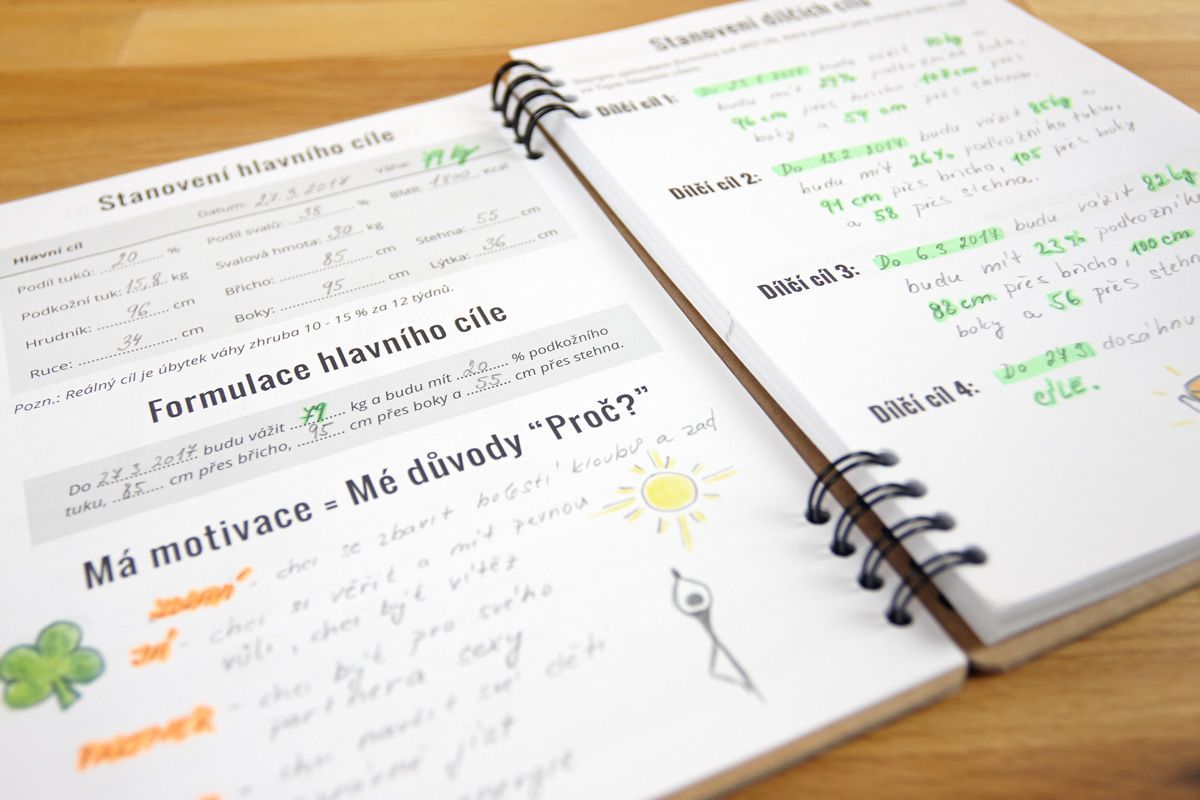 Stanovení hlavního cíle
Hlavní cíl
Datum: 27.3.2017 Váha: 79 kg
Podíl tuků: 20 % Podíl svalů: 38 % BMR: 1800 kcal
Podkožní tuk: 15,8 kg Svalová hmota: 30 kg Stehna: 55 cm
Hrudník: 96 cm Břicho: 85 cm Lýtka: 36 cm
Ruce: 34 cm Boky: 95 cm
Pozn.: Reálný cíl je úbytek váhy zhruba 10 - 15 % za 12 týdnů.
Formulace hlavního cíle
Do 27.3.2017 budu vážit 79 kg a budu mít 20 % podkožního
tuku, 85 cm přes břicho, 95 cm přes boky a 55 cm přes stehna.
Má motivace = Mé důvody “Proč?”
- chci se zbavit bolesti kloubů a zad
- chci si věřit a mít pevnou
vůli, chci být vítěz
PARTNER - chci být pro svého
partnera sexy
chci naučit své děti
jíst
energie
Stanovení dílčích cílů
Dílčí cíl 1: budu vážit
budu mít 27% podkožního tuku,
96 cm přes břicho, 108 cm přes
boky a 59 cm přes stehna.
Dílčí cíl 2: Do 13.2 2017 budu vážit 85 kg a
budu mít 26% podkožního tuku,
91 cm přes břicho, 105 přes boky
a 58 přes stehna.
Dílčí cíl 3: Do 6.3 2017 budu vážit 82 kg
budu mít 23% podkožního
88 cm přes břicho, 100 cm přes
boky a 56 přes stehn
Dílčí cíl 4: Do 27.3 dosáhnu
CÍLE.